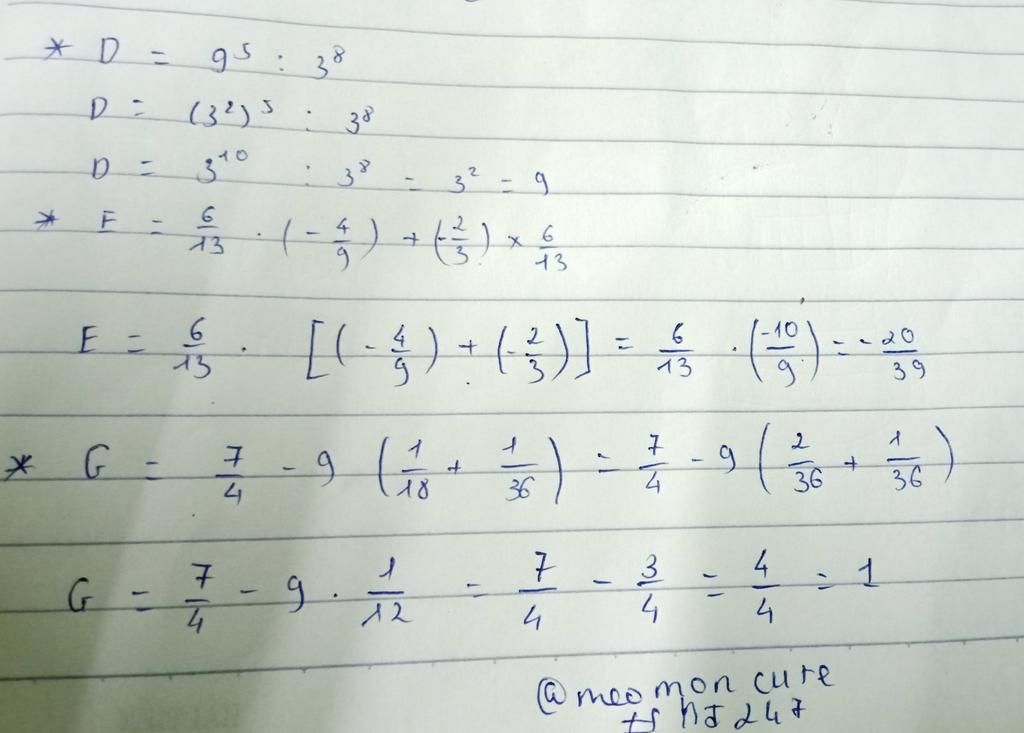 * D = 9⁵ : 3⁸
D = (3²)⁵ : 3⁸
D = 3¹⁰ : 3⁸ = 3² = 9
* E = 6/13 . (-4/9) + (-2/3) × 6/13
E = 6/13 . [(-4/9) + (-2/3)] = 6/13 . (-10/9) = -20/39
* G = 7/4 - 9 (1/18 + 1/36) = 7/4 - 9 (2/36 + 1/36)
G = 7/4 - 9 . 1/12 = 7/4 - 3/4 = 4/4 = 1
@meo mon cute
ts hJ 247